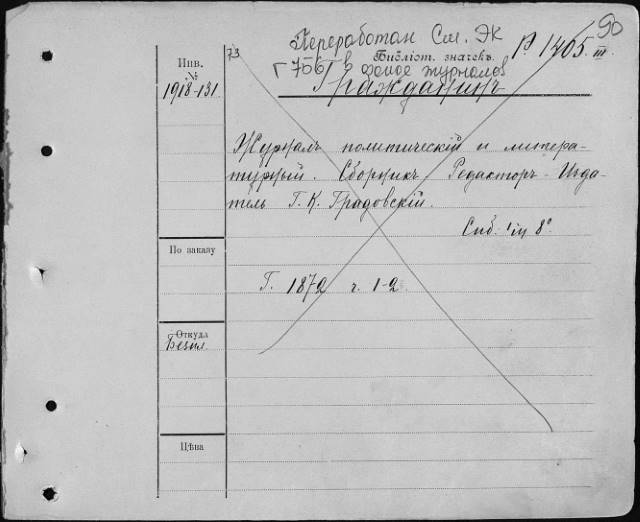 90
Переработан См. ЭК
Библіот. значекъ.
P 1405 III.
73
Г 756 в фонде журналов
Гражданинъ
Инв.
№
1918-131
Журналъ политическій и литера-
турный. Сборникъ. Редакторъ-Изда-
тель Г. К. Градовскій.
Спб. 8°
По заказу
Г. 1872 ч. 1-2.
Откуда
Безпл.
Цѣна